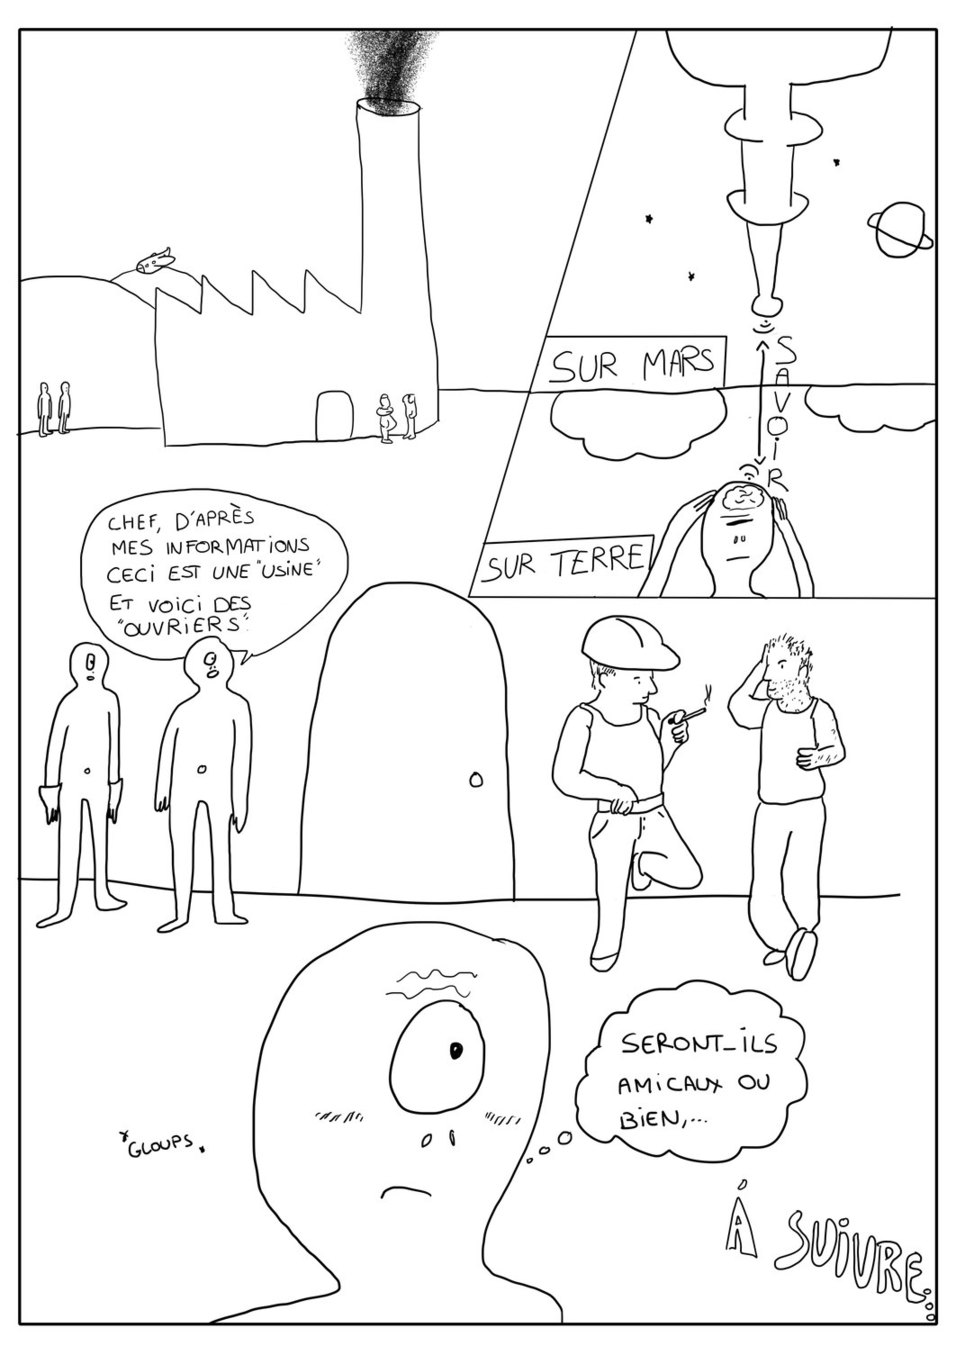 SUR MARS
SAVOIR
SUR TERRE
CHEF, D'APRÈS
MES INFORMATIONS
CECI EST UNE "USINE"
ET VOICI DES
"OUVRIERS".
SERONT-ILS
AMICAUX OU
BIEN,...
*GLOUPS*
À SUIVRE...